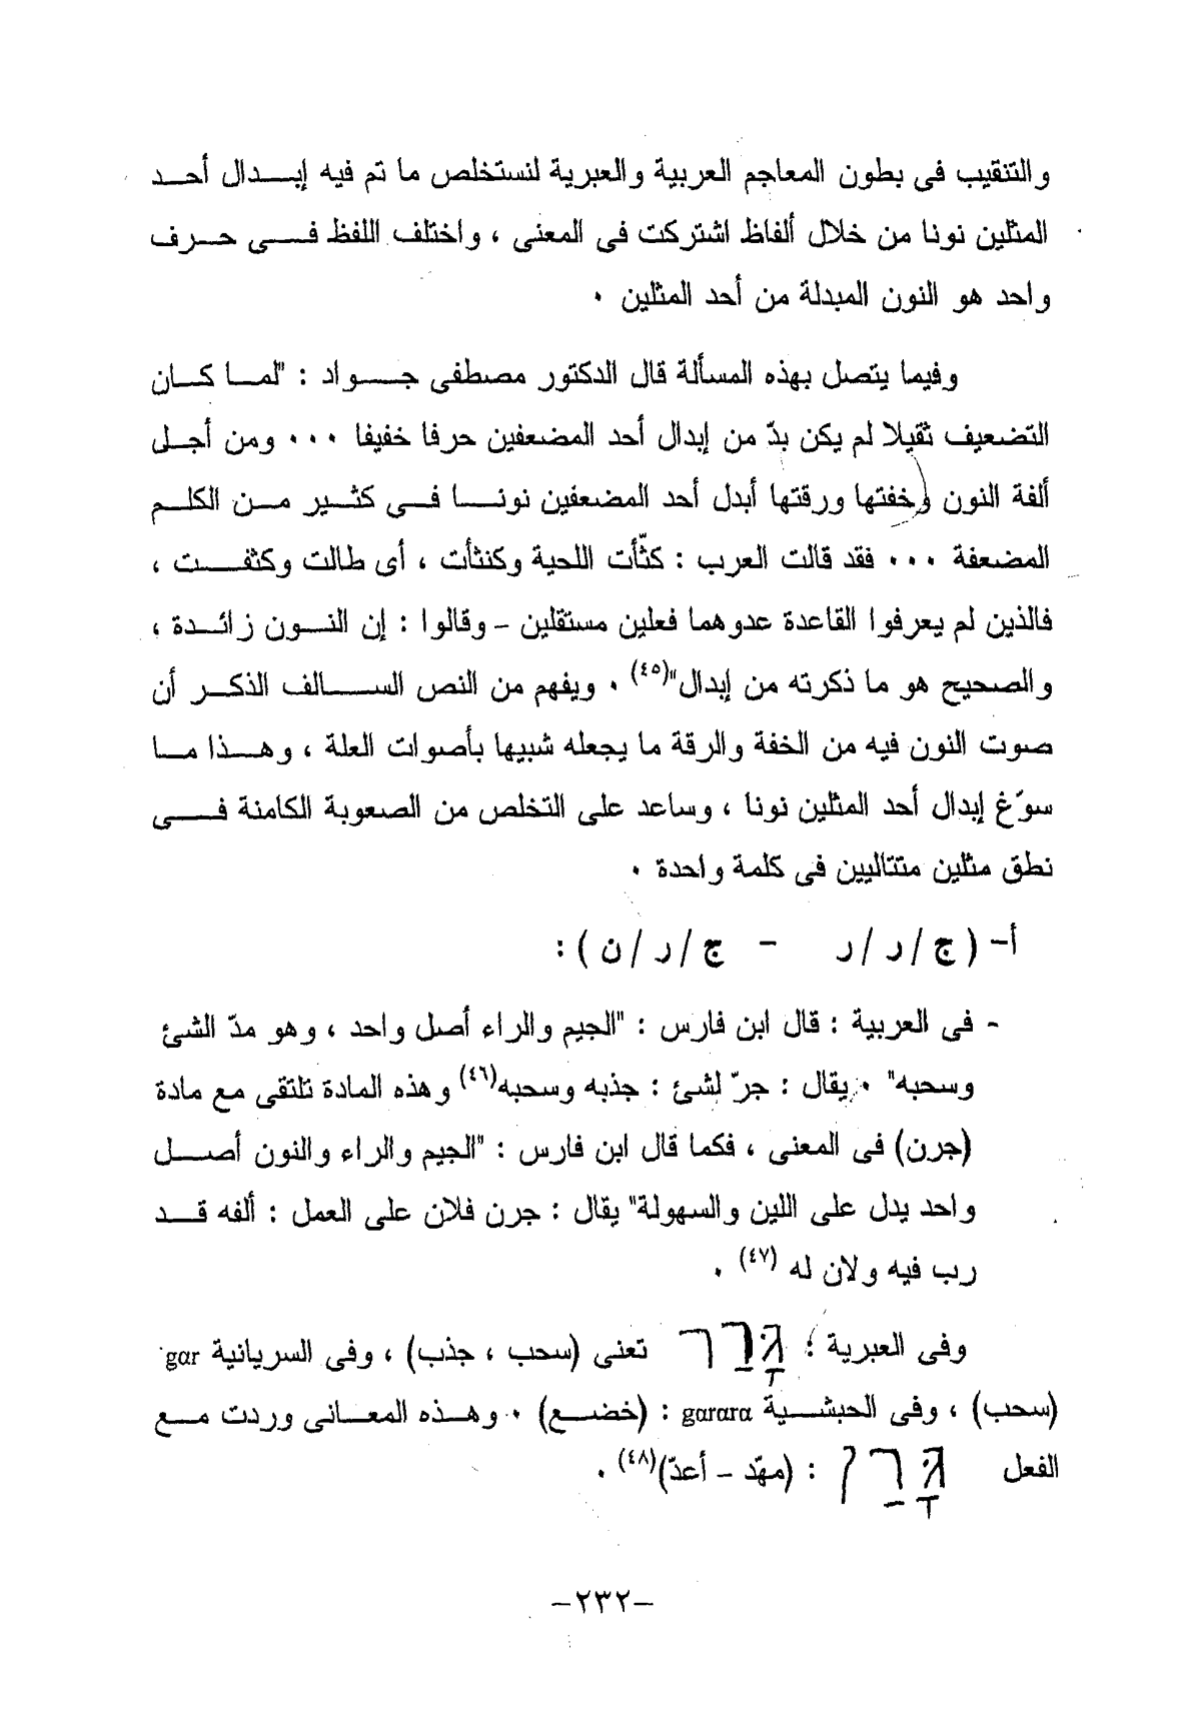 والتنقيب فى بطون المعاجم العربية والعبرية لنستخلص ما تم فيه إبدال أحد
المثلين نونا من خلال ألفاظ اشتركت فى المعنى ، واختلف اللفظ فى حرف
واحد هو النون المبدلة من أحد المثلين ٠
وفيما يتصل بهذه المسألة قال الدكتور مصطفى جواد : "لما كان
التضعيف ثقيلا لم يكن بدّ من إبدال أحد المضعفين حرفا خفيفا ٠٠٠ ومن أجل
ألفة النون وخفتها ورقتها أبدل أحد المضعفين نونا فى كثير من الكلم
المضعفة ٠٠٠ فقد قالت العرب : كثّأت اللحية وكنثأت ، أى طالت وكثفت ،
فالذين لم يعرفوا القاعدة عدوهما فعلين مستقلين – وقالوا : إن النون زائدة ،
والصحيح هو ما ذكرته من إبدال"(٤٥) ٠ ويفهم من النص السالف الذكر أن
صوت النون فيه من الخفة والرقة ما يجعله شبيها بأصوات العلة ، وهذا ما
سوّغ إبدال أحد المثلين نونا ، وساعد على التخلص من الصعوبة الكامنة فى
نطق مثلين متتاليين فى كلمة واحدة ٠
أ- (ج/ر/ر – ج/ر/ن ) :
- فى العربية : قال ابن فارس : "الجيم والراء أصل واحد ، وهو مدّ الشئ
وسحبه" ٠ يقال : جرّ لشئ : جذبه وسحبه(٤٦) وهذه المادة تلتقى مع مادة
(جرن) فى المعنى ، فكما قال ابن فارس : "الجيم والراء والنون أصل
واحد يدل على اللين والسهولة" يقال : جرن فلان على العمل : ألفه قد
رب فيه ولان له (٤٧) ٠
وفى العبرية : גָּרַר تعنى (سحب ، جذب) ، وفى السريانية gar
(سحب) ، وفى الحبشية garara : (خضع) ٠ وهذه المعانى وردت مع
الفعل גָּרַן : (مهّد – أعدّ)(٤٨) ٠
–٢٣٢–